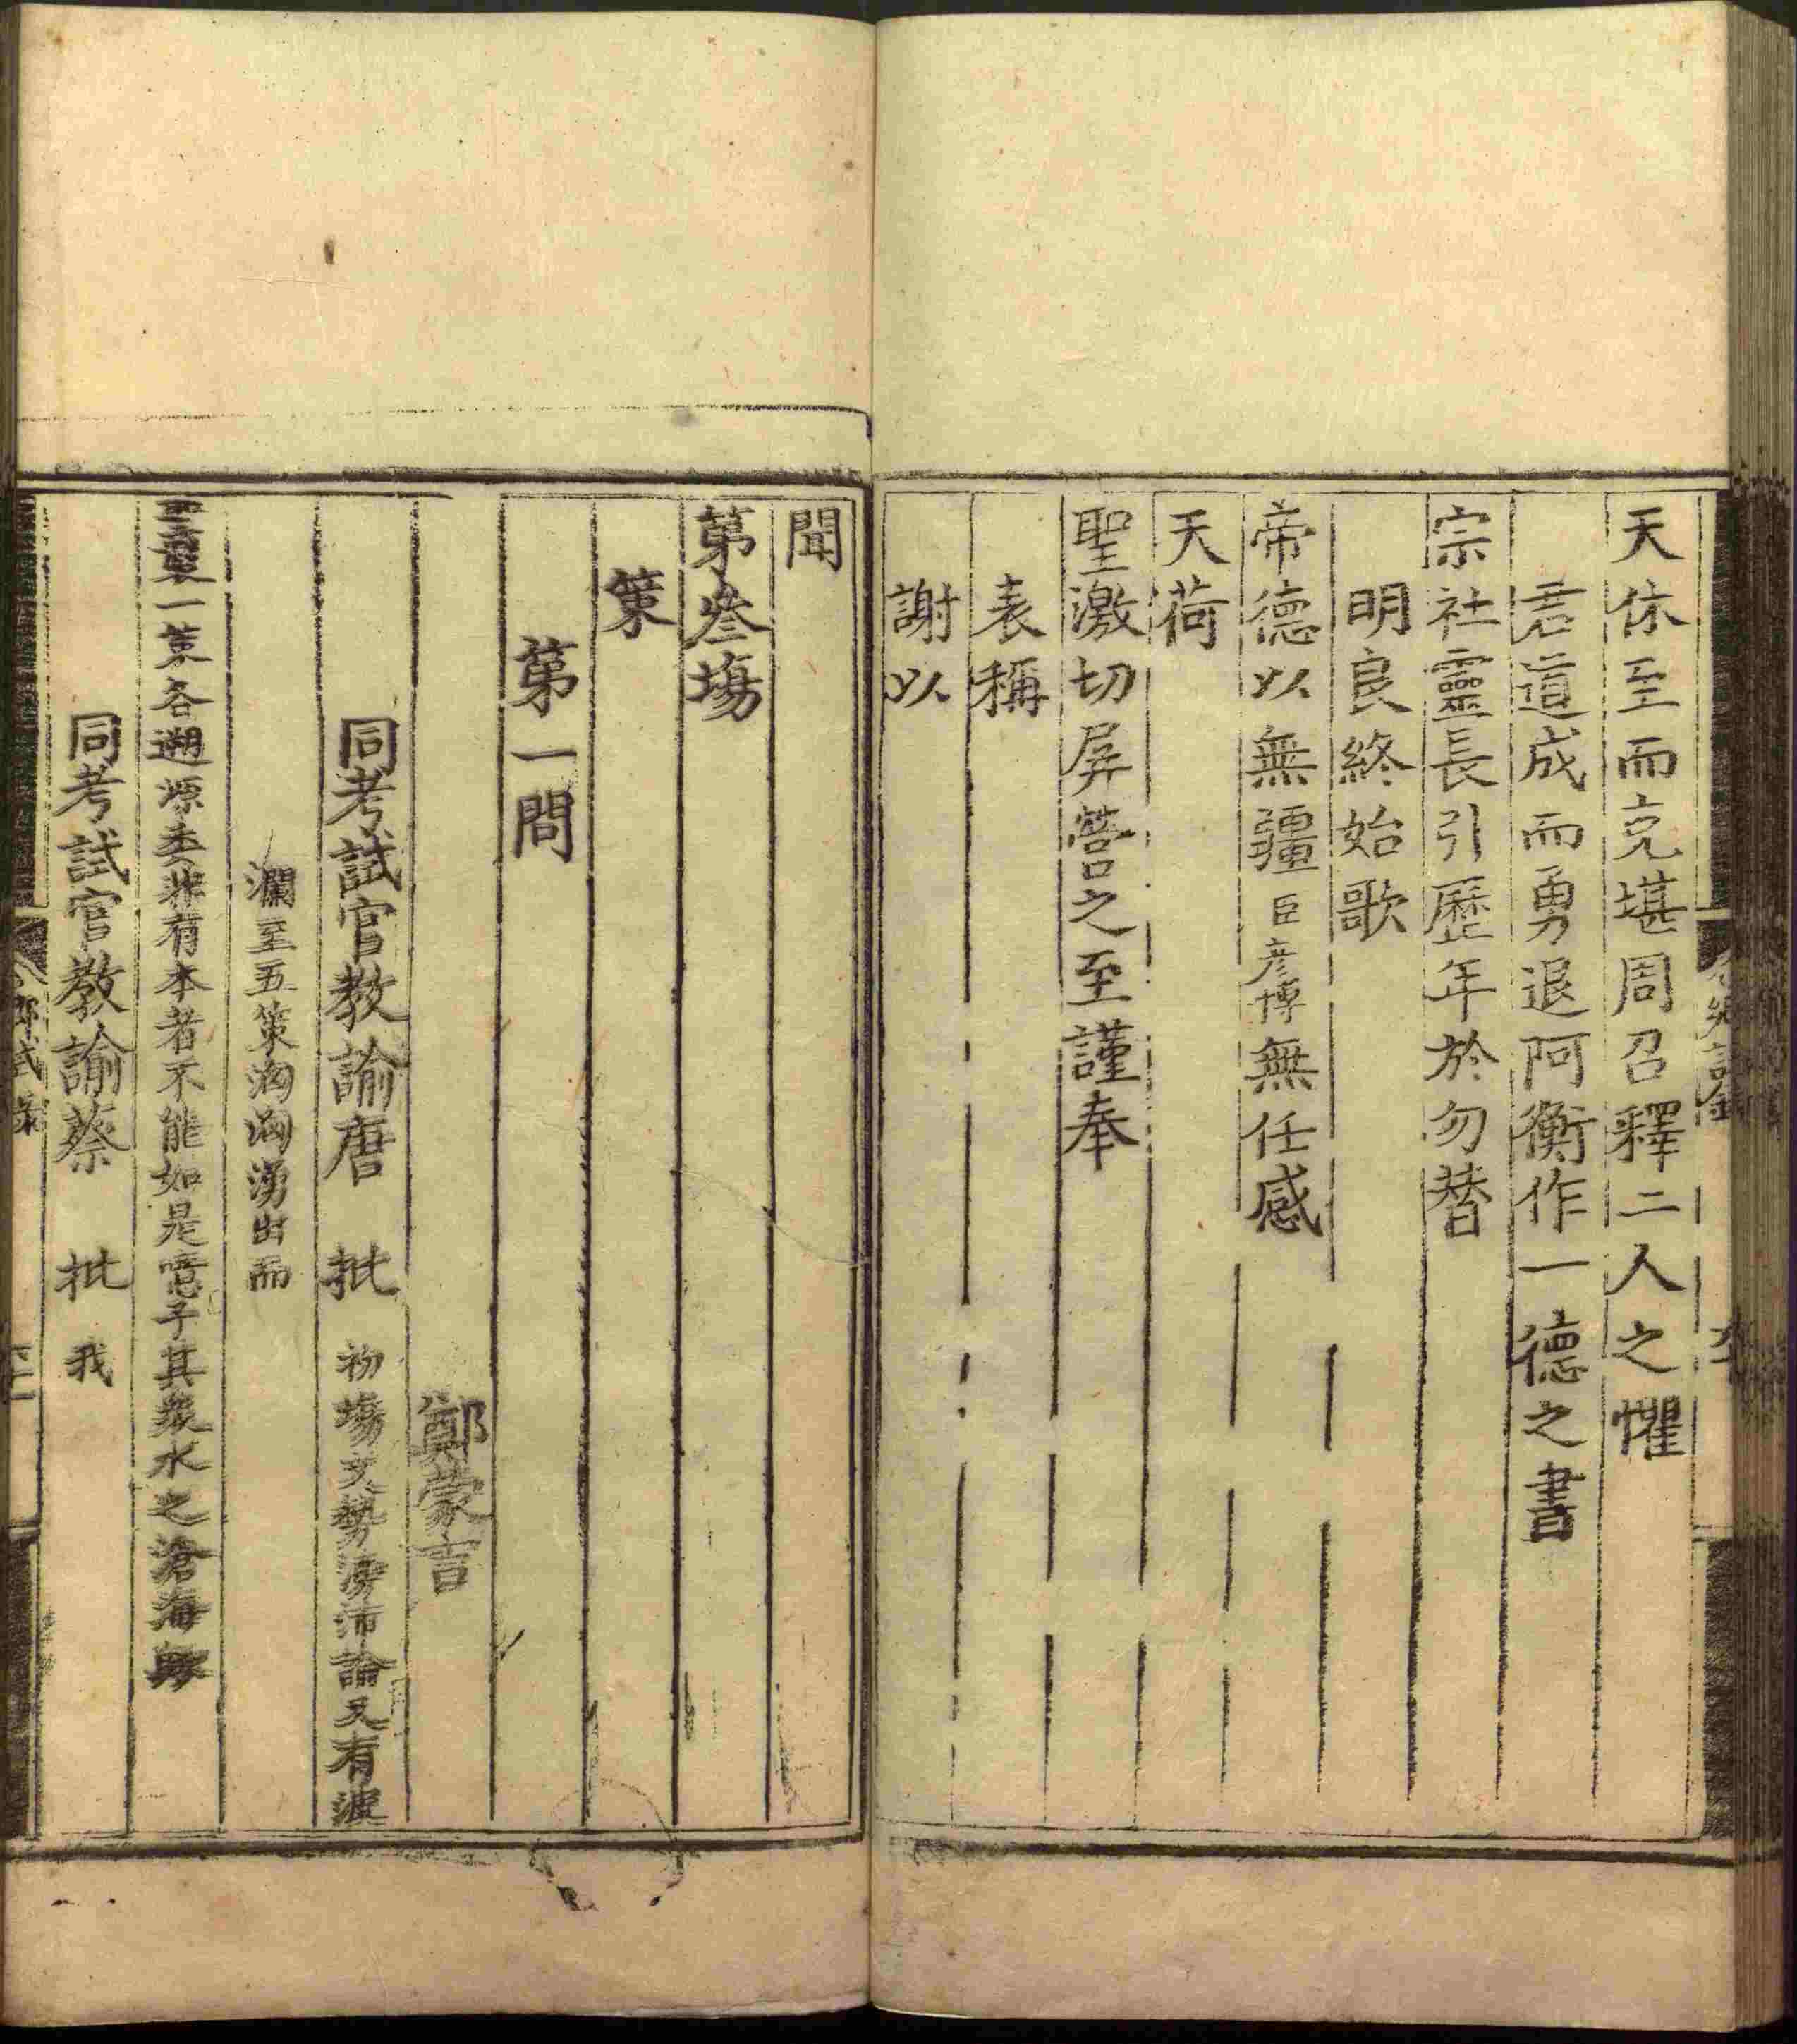 天休至而克堪周召釋二人之懼
君道成而勇退阿衡作一德之書
宗社靈長引歷年於勿替
明良終始歌
帝德以無疆臣彥博無任感
天荷
聖激切屏營之至謹奉
表稱
謝以
聞
第叁場
策
第一問
鄭蒙吉
同考試官教諭唐 批 初場文勢滂沛論又有波
瀾至五策洶洶湧出而
一策各遡源委非有本者不能如是噫子其衆水之滄海歟
同考試官教諭蔡 批 我
鄉試錄